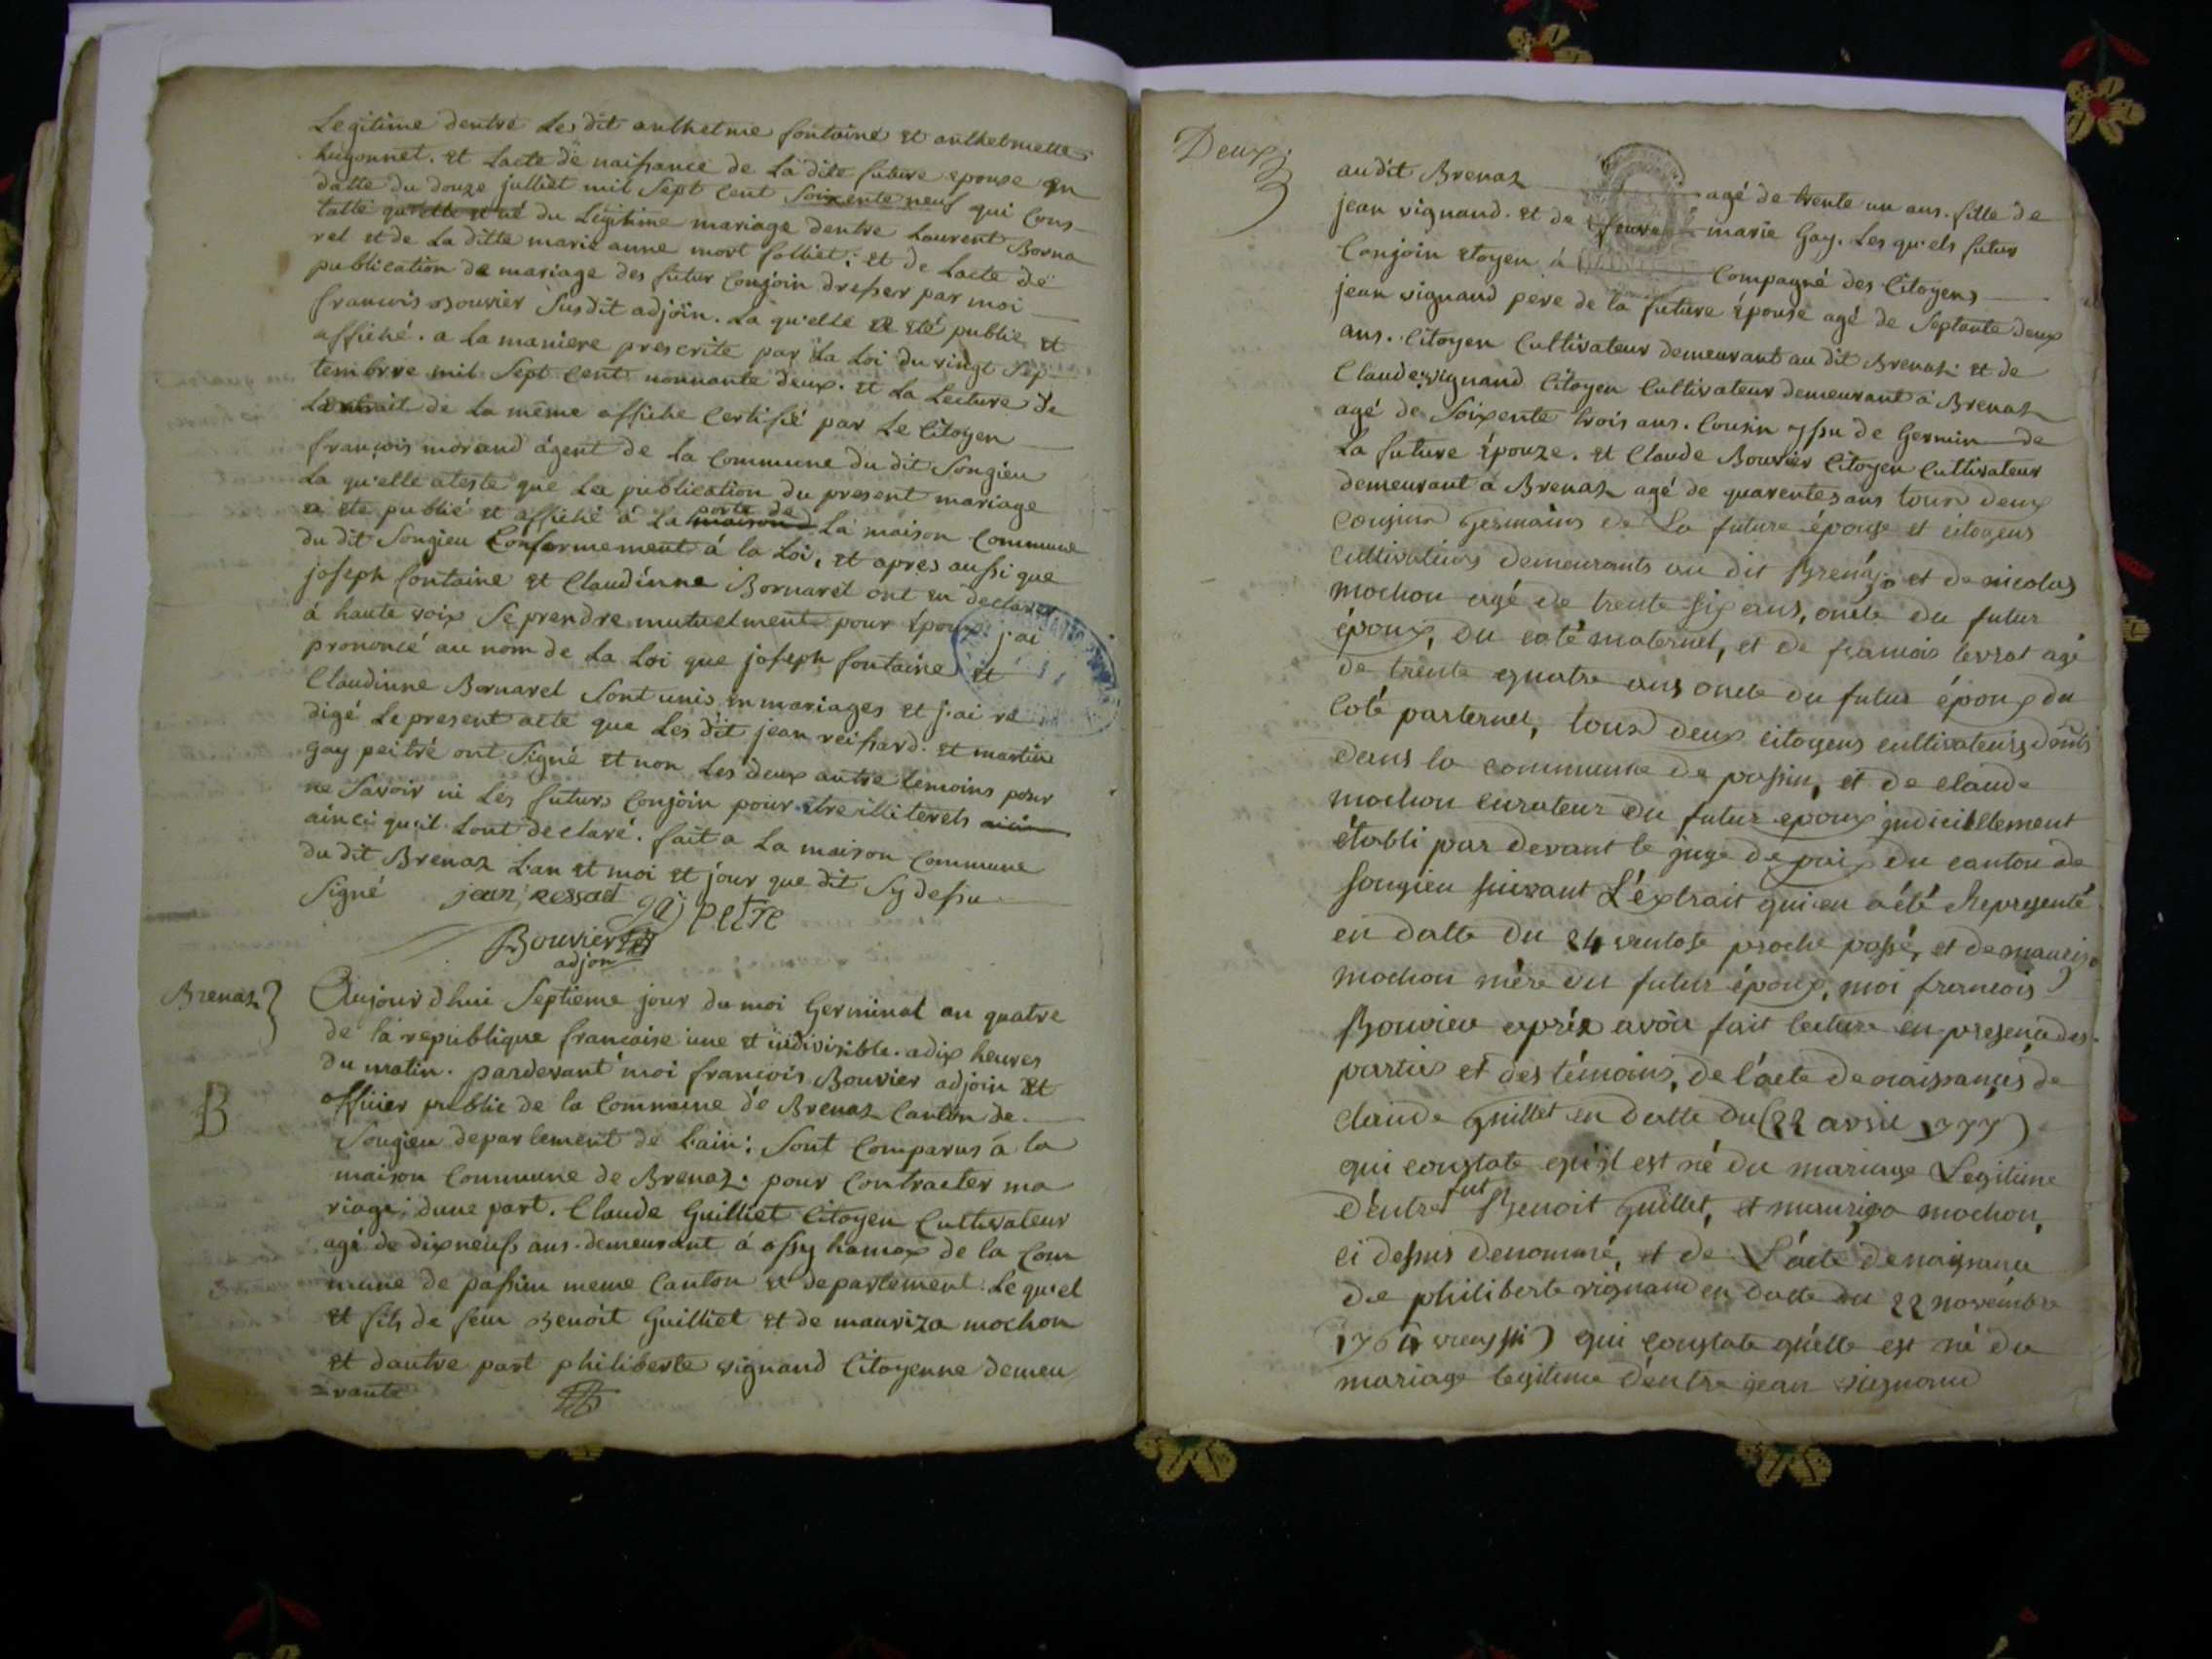 Legitime dentre Les dit anthelme fontaine et anthelmette
hugonnet. et Lacte de naissance de La dite future epouse en
datte du douze julliet mil Sept Cent Soixente neuf qui Cons
tatte qu'elle et né du Légitime mariage dentre Laurent Borna
rel et de La ditte marie anne mort folliet; et de Lacte de
publication de mariage des futur Conjoin dresser par moi
francois Bouvier Susdit adjoin. La qu'elle et eté publie et
affiché. a La maniere prescrite par La Loi du vingt Sep
tembrre mil Sept Cent nonnante deux. et La Lecture de
Lextrait de La même affiche Certifié par Le Citoyen
françois morand agent de la Commune du dit Songieu
La qu'elle ateste que La publication du present mariage
a ete publié et affiché á La maison porte de La maison Commune
du dit Songieu Confermement á la Loi, et apres aussi que
joseph fontaine et Claudinne Bornarel ont eu declarer
á haute voix Se prendre mutuelment pour époux j'ai
prononcé au nom de La Loi que joseph fontaine et
Claudinne Bornarel Sont unis en mariages et j'ai re
digé Le present acte que Les dit jean reissard. et martin
gay peitré ont Signé et non Les deux autre temoins pour
ne Savoir ni Les futurs Conjoin pour etre illiterels
ainci qu'il Lont declaré. fait a La maison Commune
du dit Brenaz L'an et moi et jour que dit Sy dessu
Signé jean ressart gaj petre
Bouvier
adjon
Brenaz
Aujourdhui Septieme jour du moi Germinal an quatre
de la republique francaise une et indivisible. a dix heures
du matin. pardevant moi francois Bouvier adjoin et
B
officier public de la Commune de Brenaz Canton de
Songieu departement de L'ain; Sont Comparus á la
maison Commune de Brenaz. pour Contracter ma
riage; dune part. Claude Guilliet Citoyen Cultivateur
agé de dixneufs ans demeurant á ossy hamox de la Com
mune de passin meme Canton et departement. Le qu'el
et fils de feu Benoit Guilliet et de mauriza mochon
et dautre part philiberte vignand Citoyenne demeu
rante
Deux
au dit Brenaz agé de trente un ans. fille de
jean vignand. et de marie Gay. Les qu'els futur
Conjoin etoyen á Compagné des Citoyens
jean vignand pere de la future épouse agé de Septante deux
ans. Citoyen Cultivateur demeurant au dit Brenaz et de
Claude vignand Citoyen Cultivateur demeurant á Brenaz
agé de Soixente trois ans. Cousin yssu de Germin de
La future épouze. et Claude Bouvier Citoyen Cultivateur
demeurant á Brenaz agé de quarente ans tous deux
cousins germains de La future épouse et citoyens
cultivateurs demeurants au dit Brenáz, et de nicolas
mochon agé de trente six ans, oncle du futur
époux, du coté maternel, et de francois levrat agé
de trente quatre ans oncle du futur époux du
coté parternel, tous deux citoyens cultivateurs
dans la commune de passin, et de claude
mochon curateur du futur epoux judiciellement
établi par devant le juge de paix du canton de
songieu suivant L'éxtrait qui en a été Representé
en datte du 24 ventose proche passé, et de mauriza
mochon mère du futur époux, moi francois
Bouvier aprés avoir fait lecture en presence des
parties et des témoins, de l'acte de naissances de
claude guillet en datte du (22 avril 1777)
qui constate qu'il est né du mariage Legitime
d'entre fut Benoit guillet, et mauriza mochon,
ci dessus denommé, et de L'acte de naissance
de philiberte vignand en datte du 22 novembre
qui constate qu'elle est né du
mariage legitime d'entre jean vignand